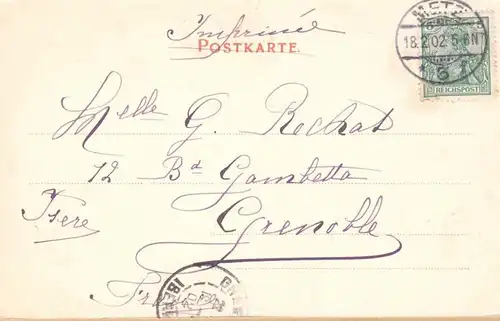 Imprimé
POSTKARTE.
METZ
18.2.02.5-6N
* 5 *
REICHSPOST
Melle G. Rochat
12 Bd Gambetta
Isere
Grenoble